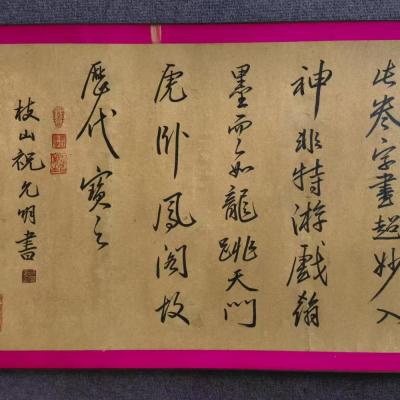 此卷字書超妙入
神非特游戲翰
墨而已如龍跳天門
虎卧鳳閣故
歷代寶之
枝山祝允明書